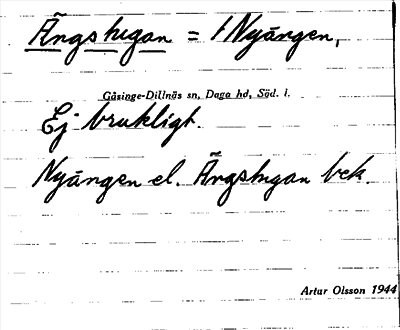 Ängstugan = / Nyängen,
Gåsinge-Dillnäs sn, Daga hd, Söd. l.
Ej brukligt.
Nyängen el. Ängstugan bek.
Artur Olsson 1944